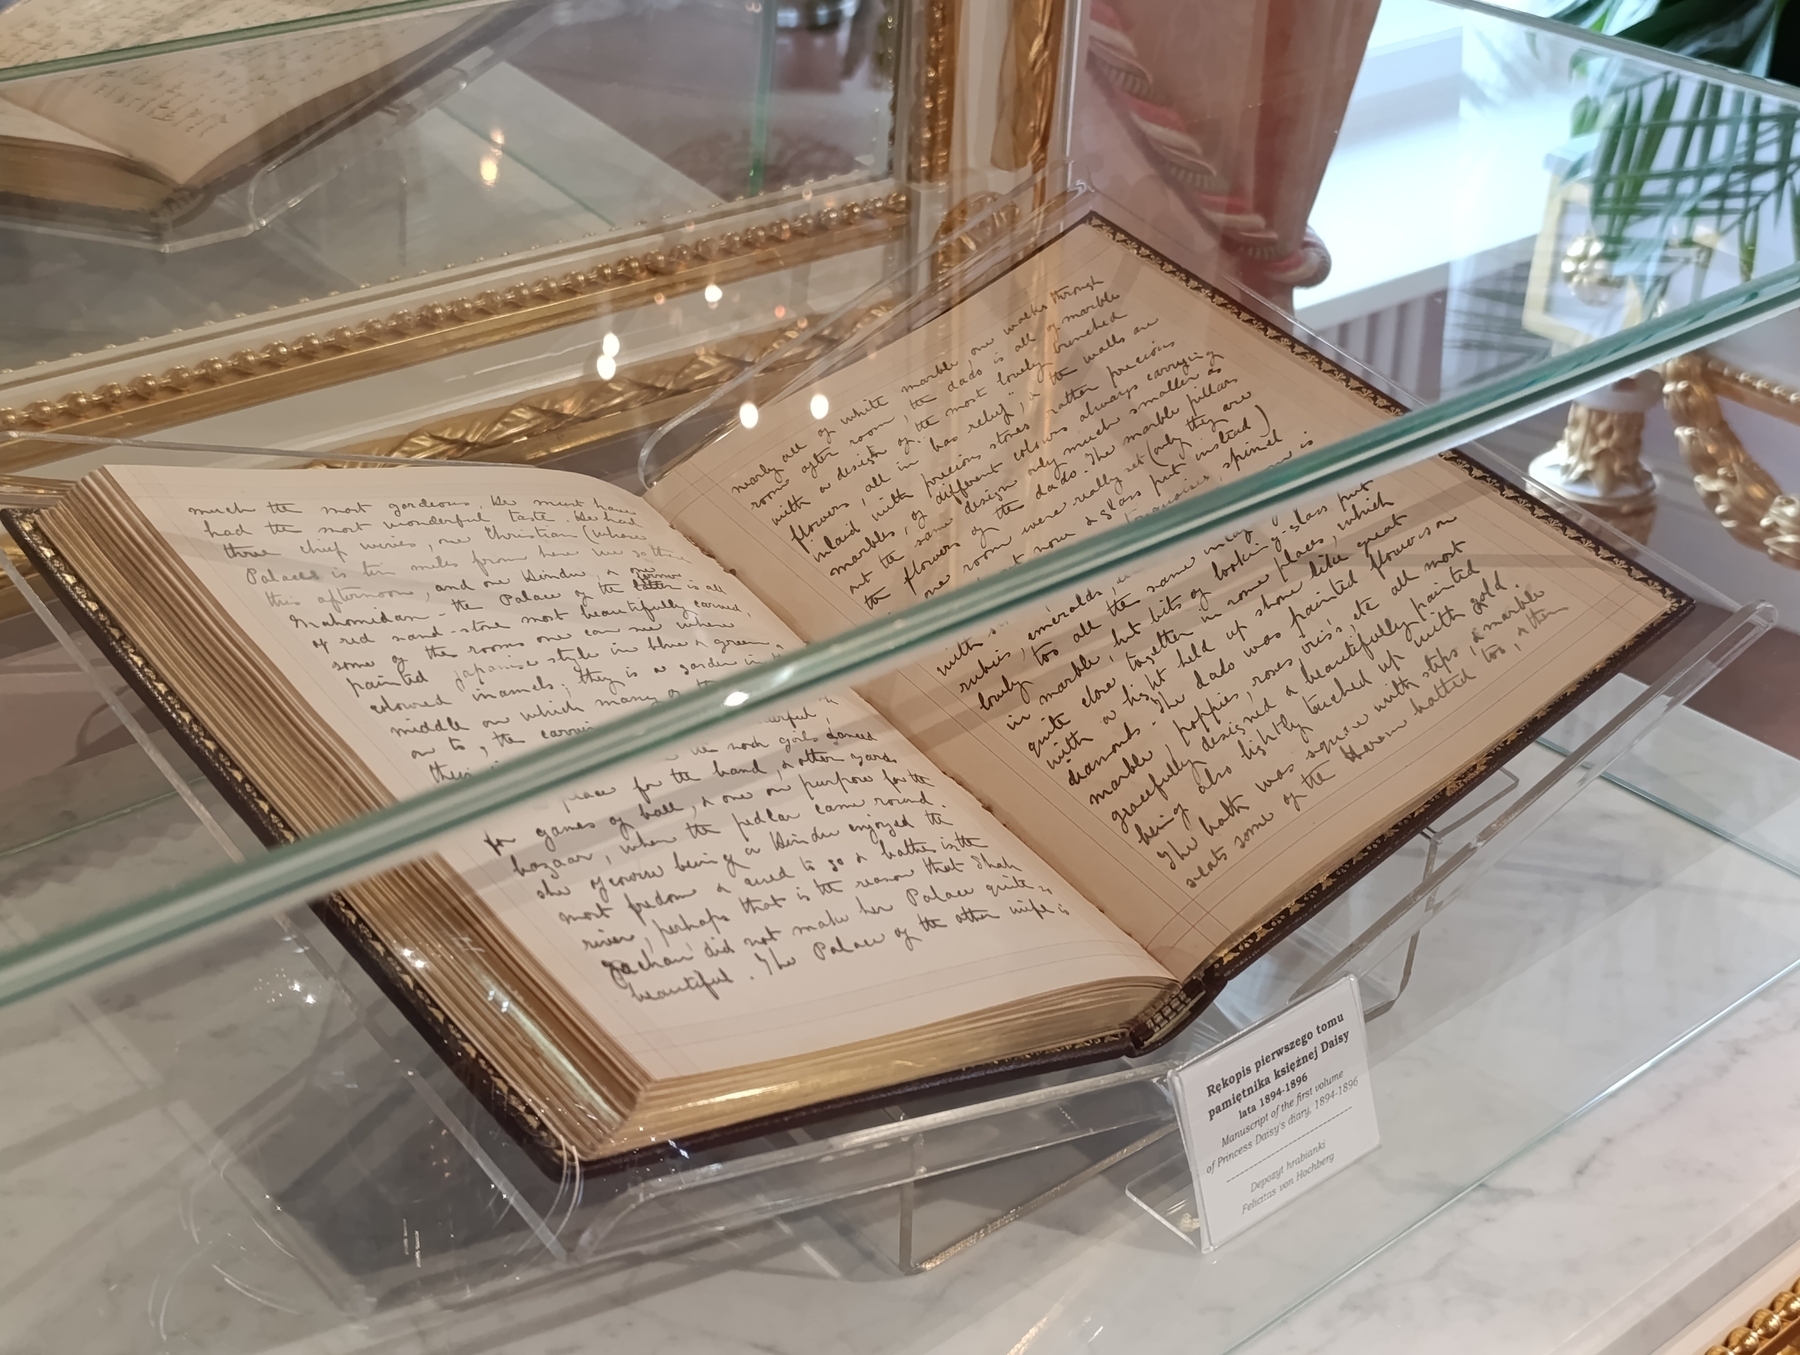 much the most gorgeous. He must have
had the most wonderful taste. He had
three chief wives, one Christian (whose
Palace is ten miles from here we go there
this afternoon, and one Hindu, & one
Mahomidan - the Palace of the former latter is all
of red sand-stone most beautifully carved,
some of the rooms one can see where
painted japanese style in blue & green
coloured inamels; they is a garden in the
middle on which many of the
on to, the carving
their
place for the band, & other
for games of ball, & one on purpose for the
bazaar, when the pedlar came round.
She of course being a Hindu enjoyed the
most fredom & used to go & bathe in the
river, perhaps that is the reason that Shah
did not make her Palace quite so
beautiful. The Palace of the other wife is
nearly all of white marble, one walks through
room after room, the dado is all of marble
with a design of the most lovely bunched
flowers, all in bas relief, & the walls are
inlaid with precious stones rather precious
marbles, of different colours always carrying
out the same design only much smaller as
the flowers of the dado. The marble pillars
one room were really set (only they are
not now & glass put instead)
with turquoises, spinel
rubies, emeralds,
lovely too all the same
in marble, but bits of looking-glass put
quite close together in some places, which
with a light held up shone like great
diamonds. The dado was painted flowers on
marble, poppies, roses iris, etc all most
gracefully designed & beautifully painted
being also lightly touched up with gold.
The bath was square with steps, & marble
seats some of the Harem bathed too, & then
Rękopis pierwszego tomu
pamiętnika księżnej Daisy
lata 1894-1896
Manuscript of the first volume
of Princess Daisy's diary, 1894-1896
Depozyt hrabianki
Felicitas von Hochberg